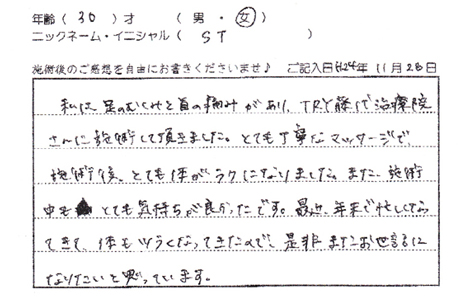 年齢( 30 )才 ( 男 ・ 女 )
ニックネーム・イニシャル( ST )
施術後のご感想を自由にお書きくださいませ♪ ご記入日H24年 11月 28日
私は足のむくみと首の痛みがあり、TRY藤代治療院
さんに施術して頂きました。とても丁寧なマッサージで、
施術後、とても体がラクになりました。また、施術
中も とても気持ちが良かったです。最近、年末で忙しくなっ
てきて、体もツラくなってきたので、是非またお世話に
なりたいと思っています。